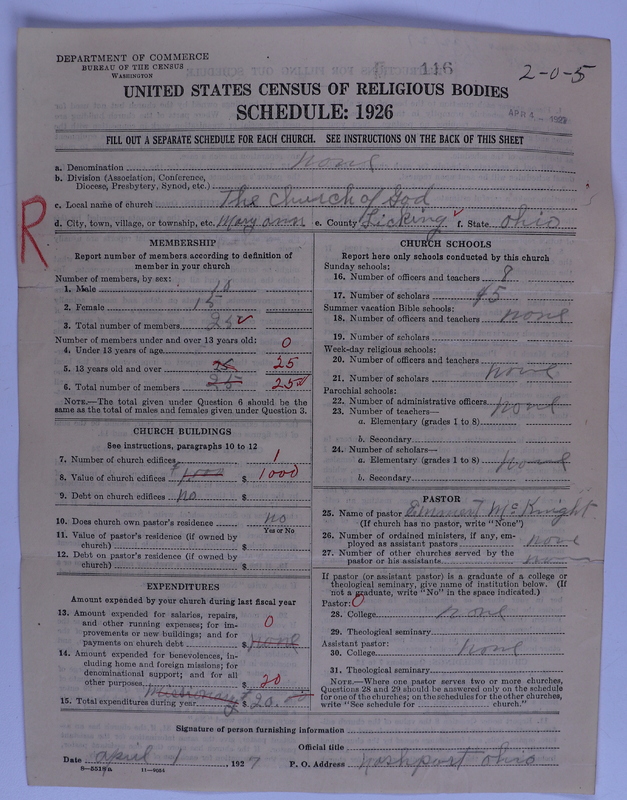 DEPARTMENT OF COMMERCE
BUREAU OF THE CENSUS
WASHINGTON
116
2-0-5
UNITED STATES CENSUS OF RELIGIOUS BODIES
SCHEDULE: 1926
APR 4 - 1927
FILL OUT A SEPARATE SCHEDULE FOR EACH CHURCH. SEE INSTRUCTIONS ON THE BACK OF THIS SHEET
a. Denomination none
b. Division (Association, Conference, Diocese, Presbytery, Synod, etc.)
c. Local name of church The Church of God
d. City, town, village, or township, etc. Mary ann e. County Licking f. State Ohio
R
MEMBERSHIP
Report number of members according to definition of
member in your church
Number of members, by sex:
1. Male 10
2. Female 15
3. Total number of members 25
Number of members under and over 13 years old:
4. Under 13 years of age 0
5. 13 years old and over 25 25
6. Total number of members 25 25
NOTE.—The total given under Question 6 should be the
same as the total of males and females given under Question 3.
CHURCH BUILDINGS
See instructions, paragraphs 10 to 12
7. Number of church edifices 1
8. Value of church edifices $1,000 $ 1000
9. Debt on church edifices no $
10. Does church own pastor's residence no
Yes or No
11. Value of pastor's residence (if owned by
church) $
12. Debt on pastor's residence (if owned by
church) $
EXPENDITURES
Amount expended by your church during last fiscal year
13. Amount expended for salaries, repairs,
and other running expenses; for im-
provements or new buildings; and for
payments on church debt $ none 0
14. Amount expended for benevolences, in-
cluding home and foreign missions; for
denominational support; and for all
other purposes $ 20
Missionary
15. Total expenditures during year $ 20.00
CHURCH SCHOOLS
Report here only schools conducted by this church
Sunday schools:
16. Number of officers and teachers 8
17. Number of scholars 45
Summer vacation Bible schools:
18. Number of officers and teachers none
19. Number of scholars
Week-day religious schools:
20. Number of officers and teachers
21. Number of scholars none
Parochial schools:
22. Number of administrative officers none
23. Number of teachers—
a. Elementary (grades 1 to 8)
b. Secondary
24. Number of scholars—
a. Elementary (grades 1 to 8) none
b. Secondary
PASTOR
25. Name of pastor Emmert McKnight
(If church has no pastor, write "None")
26. Number of ordained ministers, if any, em-
ployed as assistant pastors none
27. Number of other churches served by the
pastor or his assistants
If pastor (or assistant pastor) is a graduate of a college or
theological seminary, give name of institution below. (If
not a graduate, write "No" in the space indicated.)
Pastor: 0
28. College none
29. Theological seminary
Assistant pastor:
30. College none
31. Theological seminary
NOTE.—Where one pastor serves two or more churches,
Questions 28 and 29 should be answered only on the schedule
for one of the churches; on the schedules for the other churches,
write "See schedule for church."
Signature of person furnishing information
Official title
Date April 1, 1927 P. O. Address Nashport Ohio
8-5518a 11-9034